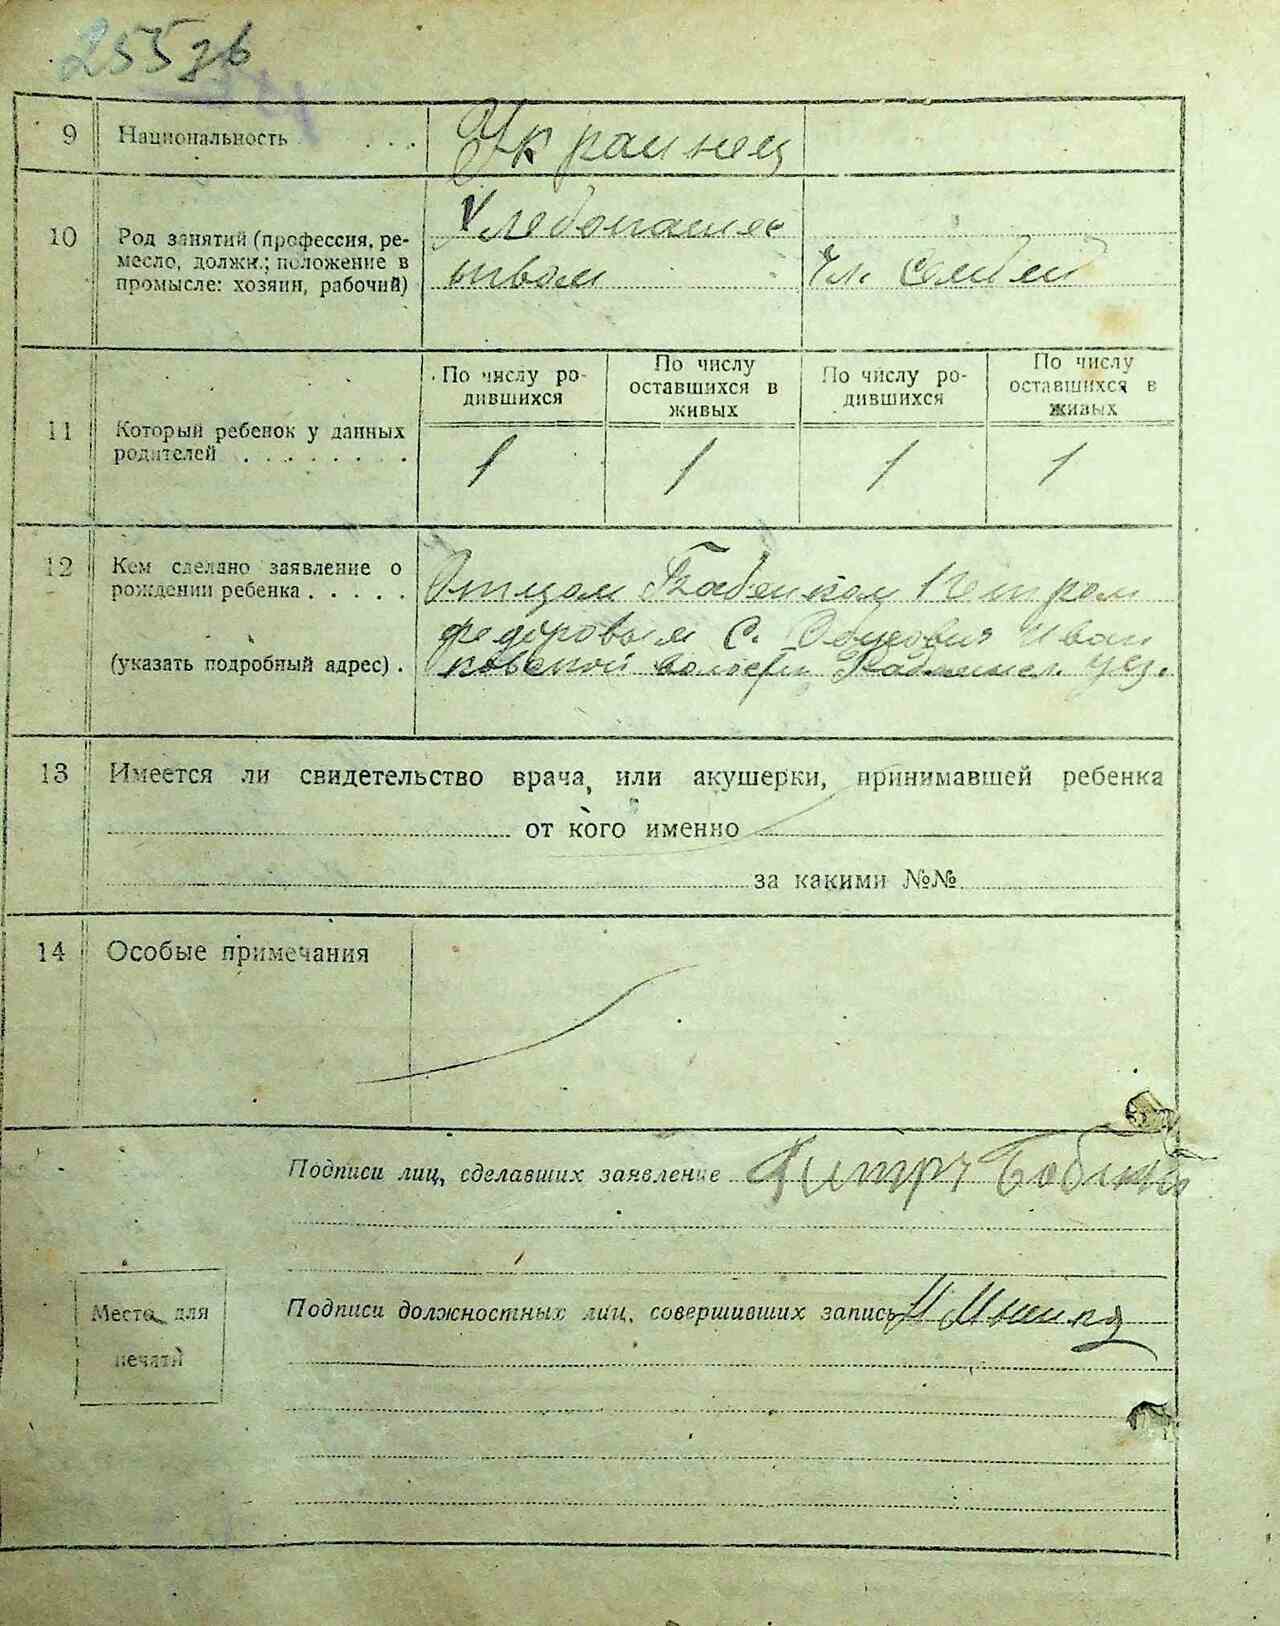 255зв
9 Национальность . . . Украинец
10 Род занятий (профессия, ре-
месло, должн.; положение в
промысле: хозяин, рабочий)
Хлебопашес
твом
Чл. семьи
11 Который ребенок у данных
родителей . . . . . . . .
По числу ро-
дившихся
По числу
оставшихся в
живых
По числу ро-
дившихся
По числу
оставшихся в
живых
1 1 1 1
12 Кем сделано заявление о
рождении ребенка . . . . .
(указать подробный адрес) .
Отцом Бабенком Петром
федоровым С. Иван
ковской волости уез.
13 Имеется ли свидетельство врача, или акушерки, принимавшей ребенка
от кого именно
за какими №№
14 Особые примечания
Подписи лиц, сделавших заявление
Подписи должностных лиц, совершивших запись
Место для
печати